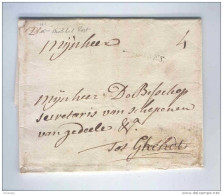 Mijnheer 4
Mijnheer De Bisschop
secretaris van schepenen
van gedeele &ª
tot Ghendt